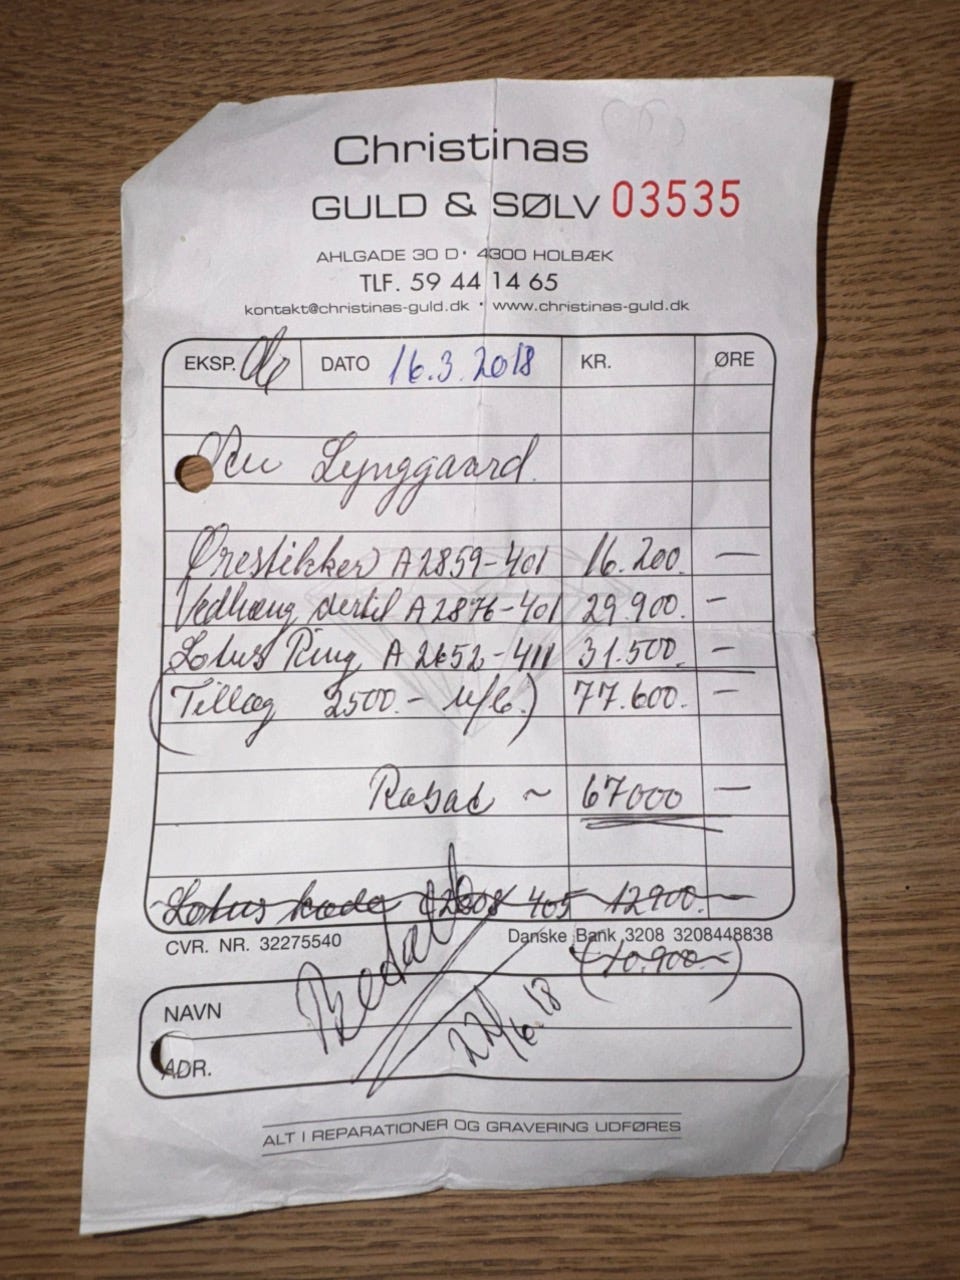 Christinas
GULD & SØLV 03535
AHLGADE 30 D · 4300 HOLBÆK
TLF. 59 44 14 65
kontakt@christinas-guld.dk · www.christinas-guld.dk
EKSP. DATO 16.3.2018 KR. ØRE
Lynggaard.
Ørestikker A2859-401 16.200. —
Vedhæng dertil A2876-401 29.900. —
Lotus Ring A 2652-411 31.500. —
(Tillæg 2500.- u/b.) 77.600. —
Rabat ~ 67000 —
Lotus kæde 405 12900. —
CVR. NR. 32275540 Danske Bank 3208 3208448838
(10.900.-)
Betalt
22/6.18
NAVN
ADR.
ALT I REPARATIONER OG GRAVERING UDFØRES